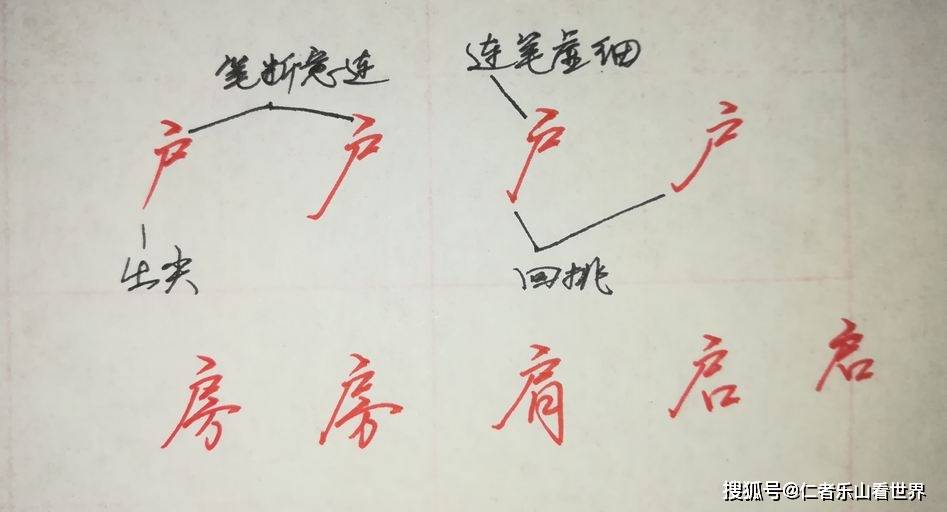 笔断意连 连笔虚细
户 户 户 户
出尖 回挑
房 房 肩 启 启
搜狐号@仁者乐山看世界